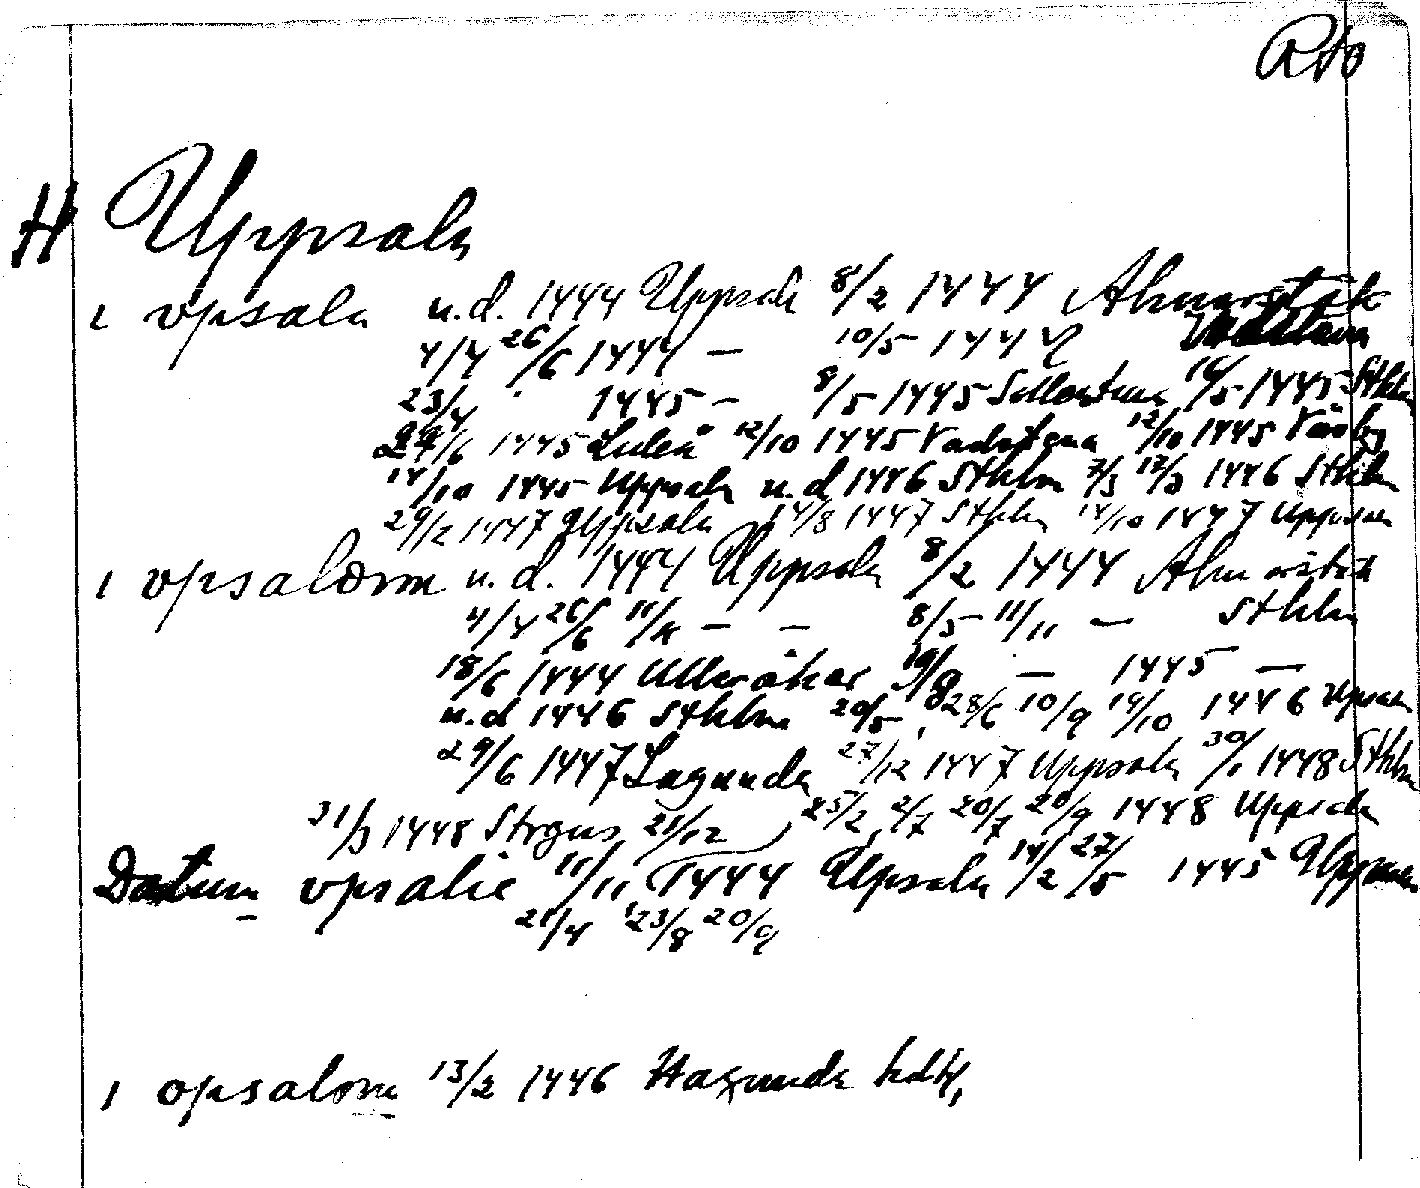 Rto
H Uppsala
i vpsala u.d. 1444 Uppsala 8/2 1444 Almarstäk
4/4 26/6 1444 — 10/5 1444 Vadstena
23/4 1445 — 8/5 1445 Sollentuna 16/5 1445 Sthlm
29/6 1445 Luleå 12/10 1445 Vadstena 12/10 1445 Väsby
14/10 1445 Uppsala u.d 1446 Sthlm 7/3 17/3 1446 Sthlm
29/2 1447 Uppsala 14/8 1447 Sthlm 14/10 1447 Uppsala
i vpsalom u.d. 1444 Uppsala 8/2 1444 Almarstäk
4/4 26/6 11/11 — — 8/5 11/11 — Sthlm
18/6 1444 Ulleråker 19/9 — 1445 —
u.d 1446 Sthlm 20/5 28/6 10/9 19/10 1446 Uppsala
29/6 1447 Lagunda 27/12 1447 Uppsala 30/1 1448 Sthlm
31/3 1448 Strgns 21/12 25/2, 2/7 20/7 20/9 1448 Uppsala
Datum vpsalie 11/11 1444 Uppsala 14/2 27/5 1445 Uppsala
21/4 23/8 20/9
i opsalom 13/2 1446 Hagunda hd